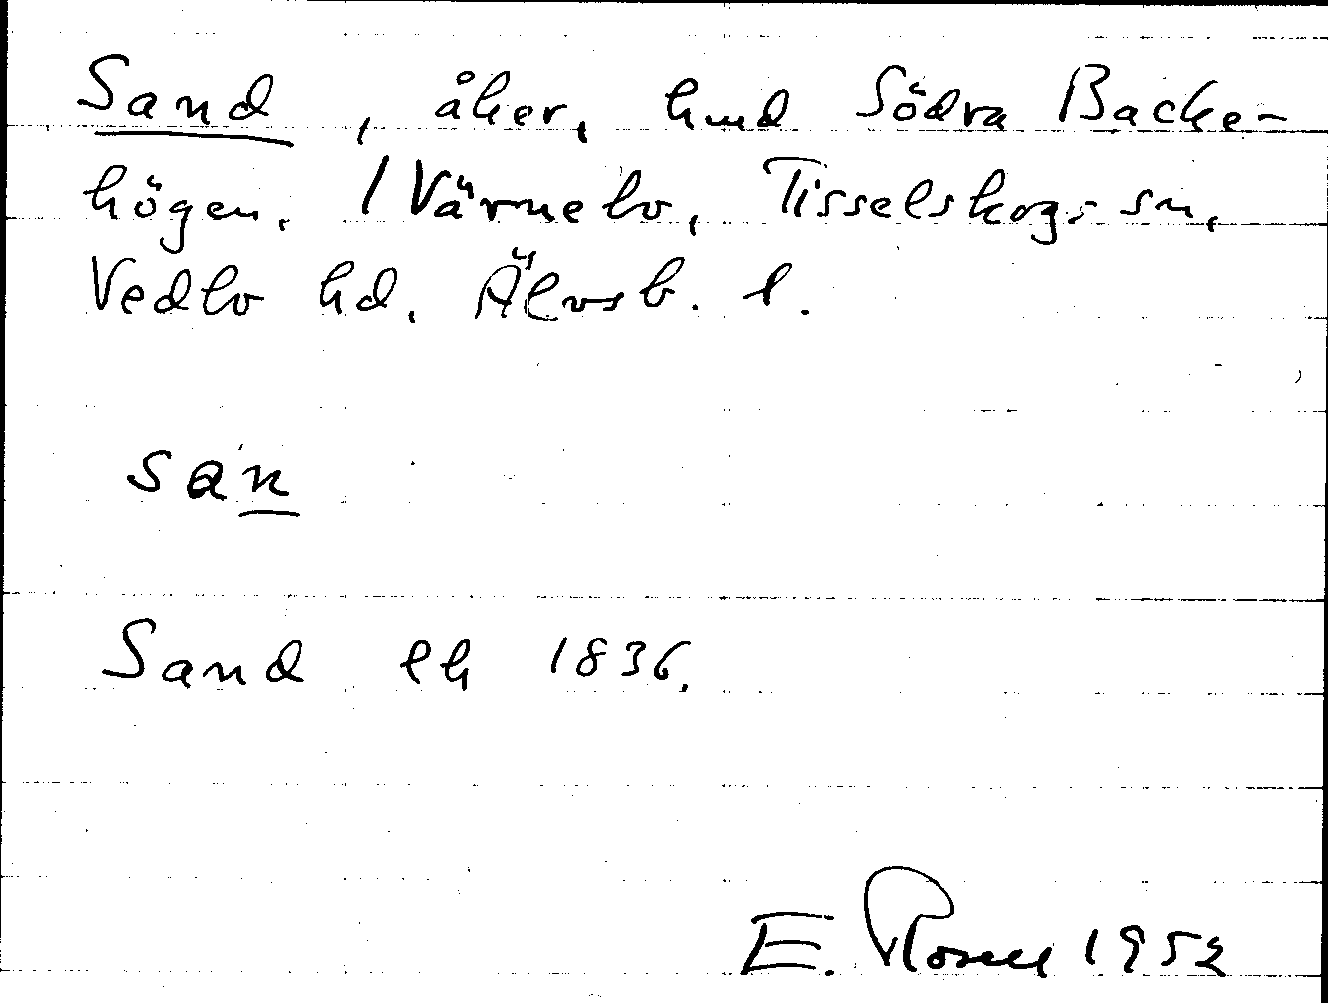 Sand, åker, hmd Södra Backe-
högen, 1 Värnebo, Tisselskogs sn,
Vedbo hd, Älvsb. l.
san
Sand lh 1836.
E. Rosell 1952